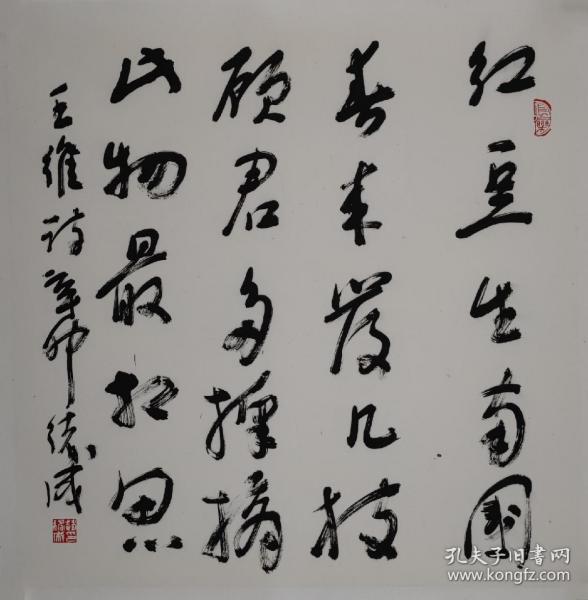 红豆生南国
春来发几枝
愿君多撷摘
此物最相思
王维诗 辛卯
孔夫子旧书网
www.kongfz.com